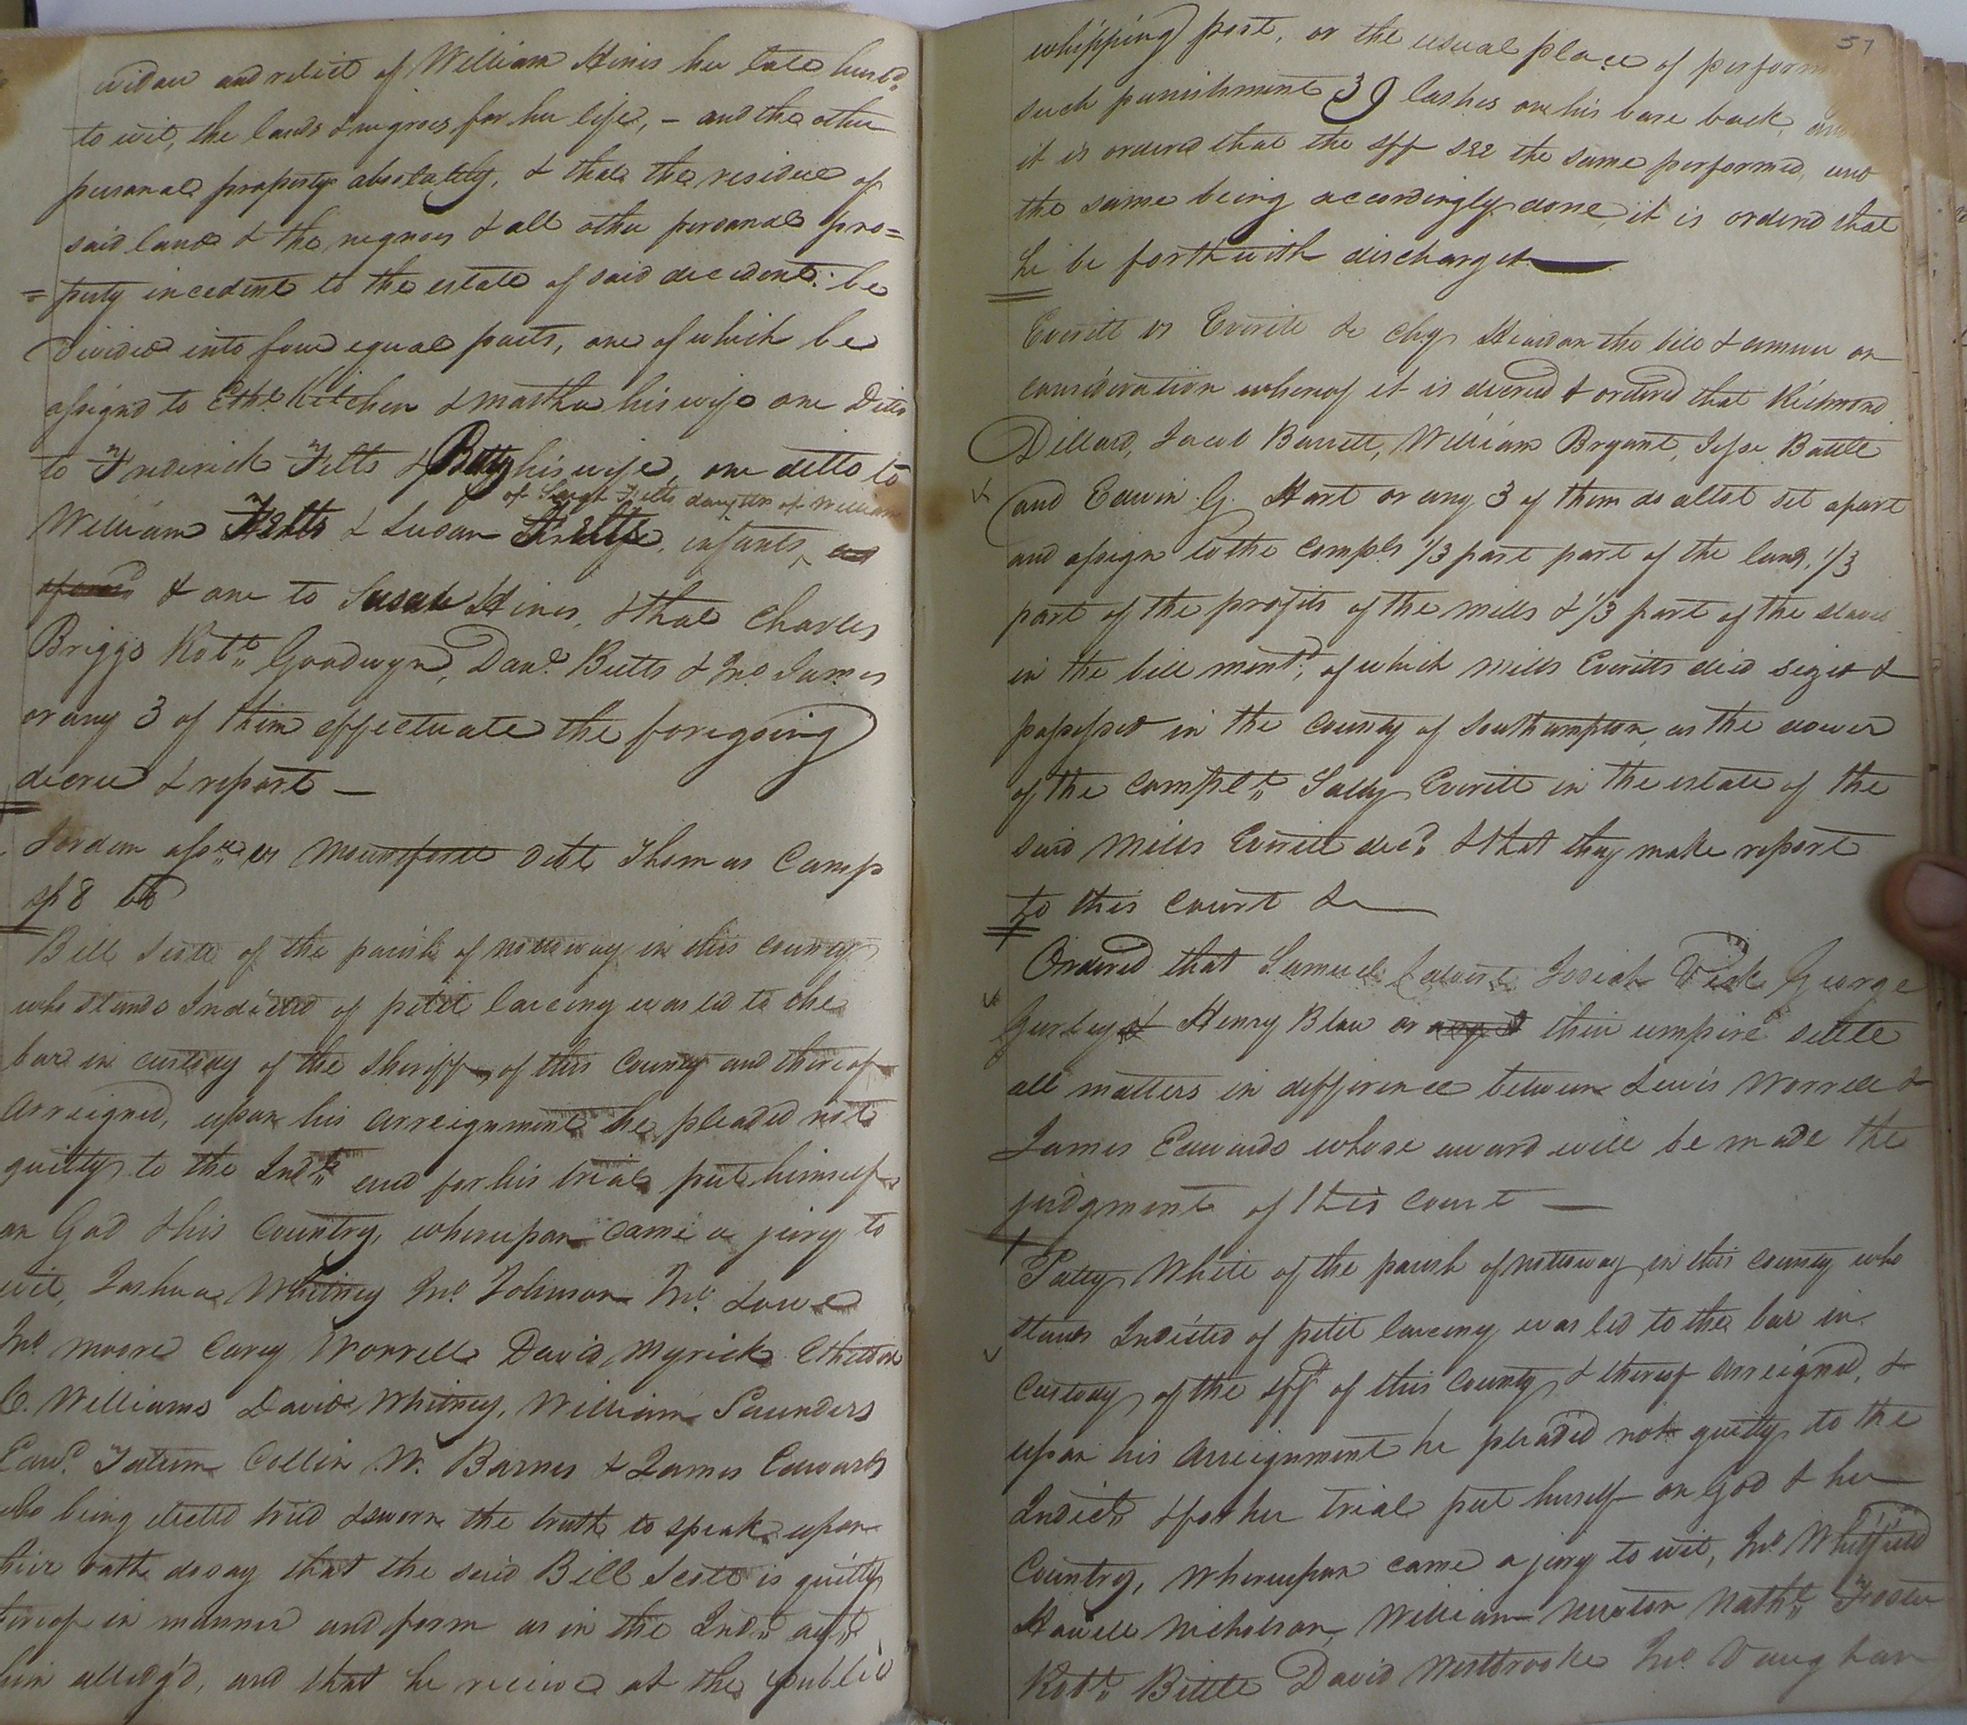 widow and relict of William Hines her late husbd.
to wit, the lands & negroes for her life, – and the other
personal property absolutely, & that the residue of
said land & the negroes & all other personal pro=
=perty incedent to the estate of said decedent be
divided into four equal parts, one of which be
assignd to Ethd. Kitchen & Martha his wife one Ditto
to Frederick Felts & Betty his wife, one ditto to
of Sergt Felts daughter of William
William Felts & Susan Felts, infants
& one to Susah Hines, & that Charles
Briggs Robt. Goodwyn, Danl. Butts & Jno. James
or any 3 of them effectuate the foregoing
decree & report –
Jordan assee. vs Mounsfortt Debt Thomas Camp
sp 8 tb
Bill Scott of the parish of nottoway in this county
who stands Indicted of petit larceny was led to the
bar in custody of the Sheriff of this County and thereof
arreigned, upon his arreignment he pleaded not
guilty to the Indt. and for his trial put himself
on God & his Country, whereupon came a jury to
wit, Joshua Whitney Jno. Johnson Jno. Love
Jno. Moore Carey Worrell David Myrick Etheldr
C. Williams David Whitney, William Saunders
Edwd. Tatum Collin W. Barnes & James Edwards
who being elected tried & sworn the truth to speak upon
their oath do say that the said Bill Scott is guilty
thereof in manner and form as in the Indt. agt.
him alledg'd, and that he receive at the public
57
whipping post, or the usual place of perform
such punishment 39 lashes on his bare back, and
it is ordered that the Sff see the same performed, and
the same being accordingly done, it is orderd that
he be forthwith discharged
Everitt vs Everitt &c Chy Heard on the bill & answer on
consideration whereof it is decreed & ordered that Richmond
Dillard, Jacob Barrett, William Bryant, Jesse Battle
and Edwin G. Hart or any 3 of them do allot set apart
and assign to the complt 1/3 part part of the land, 1/3
part of the profits of the mills & 1/3 part of the slaves
in the bill mentd., of which Mills Everitts died seized &
possessed in the County of Southampton as the dower
of the complt. Sally Everitt in the estate of the
said Mills Everitt decd. & that they make report
to this court &c
Ordered that Samuel Calvert Josiah Vick George
Gurley & Henry Blow or their umpire settle
all matters in difference between Lewis Worrell &
James Edwards whose award will be made the
judgment of this court
Patey White of the parish of nottoway in this county who
stands Indicted of petit larceny was led to the bar in
custody of the sff of this County & thereof arreigned, &
upon his arreignment he pleaded not guilty to the
Indict. & for her trial put herself on God & her
Country, whereupon came a jury to wit, Jno. Whitfield
Howell Nicholson, William Newton Nathl. Foster
Robt. Bittle David Westbrooke Jno. Vaughan